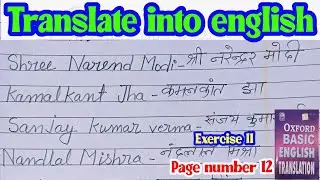 Translate into english
Shree Narend Modi - श्री नरेन्दर मोदी
Kamalkant Jha - कमलकांत झा
Sanjay Kumar verma - संजय कुमा
Exercise 11
Nandlal Mishra - नंदलाल मिश्रा
Page number 12
OXFORD
BASIC
ENGLISH
TRANSLATION